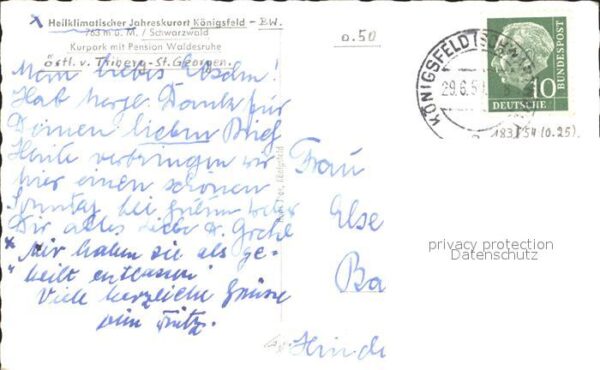 x Heilklimatischer Jahreskurort Königsfeld - BW.
763 m ü. M. / Schwarzwald
Kurpark mit Pension Waldesruhe
östl. v. Triberg - St. Georgen.
a.50
Mein liebes
Hab herzl. Dank für
Deinen lieben Brief
Heute verbringen wir
hier einen schönen
Sonntag bei
Dir alles Liebe
x Mir haben sie als ge-
heilt entlassen"
Viele herzliche Grüsse
Fritz.
Frau
Else
Ba
KÖNIGSFELD (SCHWARZW
29.6.5
10
DEUTSCHE
BUNDESPOST
183/54 (0.25).
privacy protection
Datenschutz